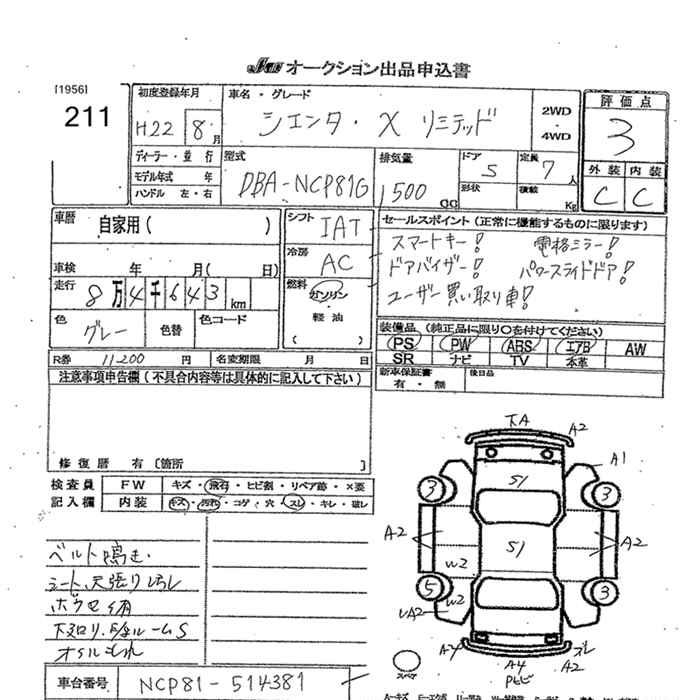 JAA オークション出品申込書
[1956]
211
初度登録年月
H22 8月
車名・グレード
シエンタ・X リミテッド
2WD
・
4WD
評価点
3
ディーラー・並行
モデル年式 年
ハンドル 左・右
型式
DBA-NCP81G
排気量
1500 CC
ドア
5
定員
7人
形状
積載
Kg
外装 内装
C C
車歴
自家用 ( )
シフト
IAT
セールスポイント (正常に機能するものに限ります)
スマートキー! 電格ミラー!
ドアバイザー! パワースライドドア!
ユーザー買い取り車!
車検 年 月( 日)
冷房
AC
走行
8万4千643 km
燃料
ガソリン
・
軽油
( )
色
グレー
色替
色コード
装備品 (純正品に限り○を付けてください)
PS PW ABS エアB AW
SR ナビ TV 本革
R券 11200 円
名変期限 月 日
新車保証書
有・無
後日品
注意事項申告欄 (不具合内容等は具体的に記入して下さい)
修復歴 有 [箇所 ]
検査員
記入欄
FW キズ・飛石・ヒビ割・リペア跡・×要
内装 キズ・汚れ・コゲ・穴・スレ・キレ・破レ
ベルト鳴き
シート、天張り汚レ
下廻り
オイルもれ
車台番号 NCP81-514381
下A
A2
A1
S1
3
3
A2
S1
A2
W2
5
W2
3
A4
A4
A2
スレ
スペア